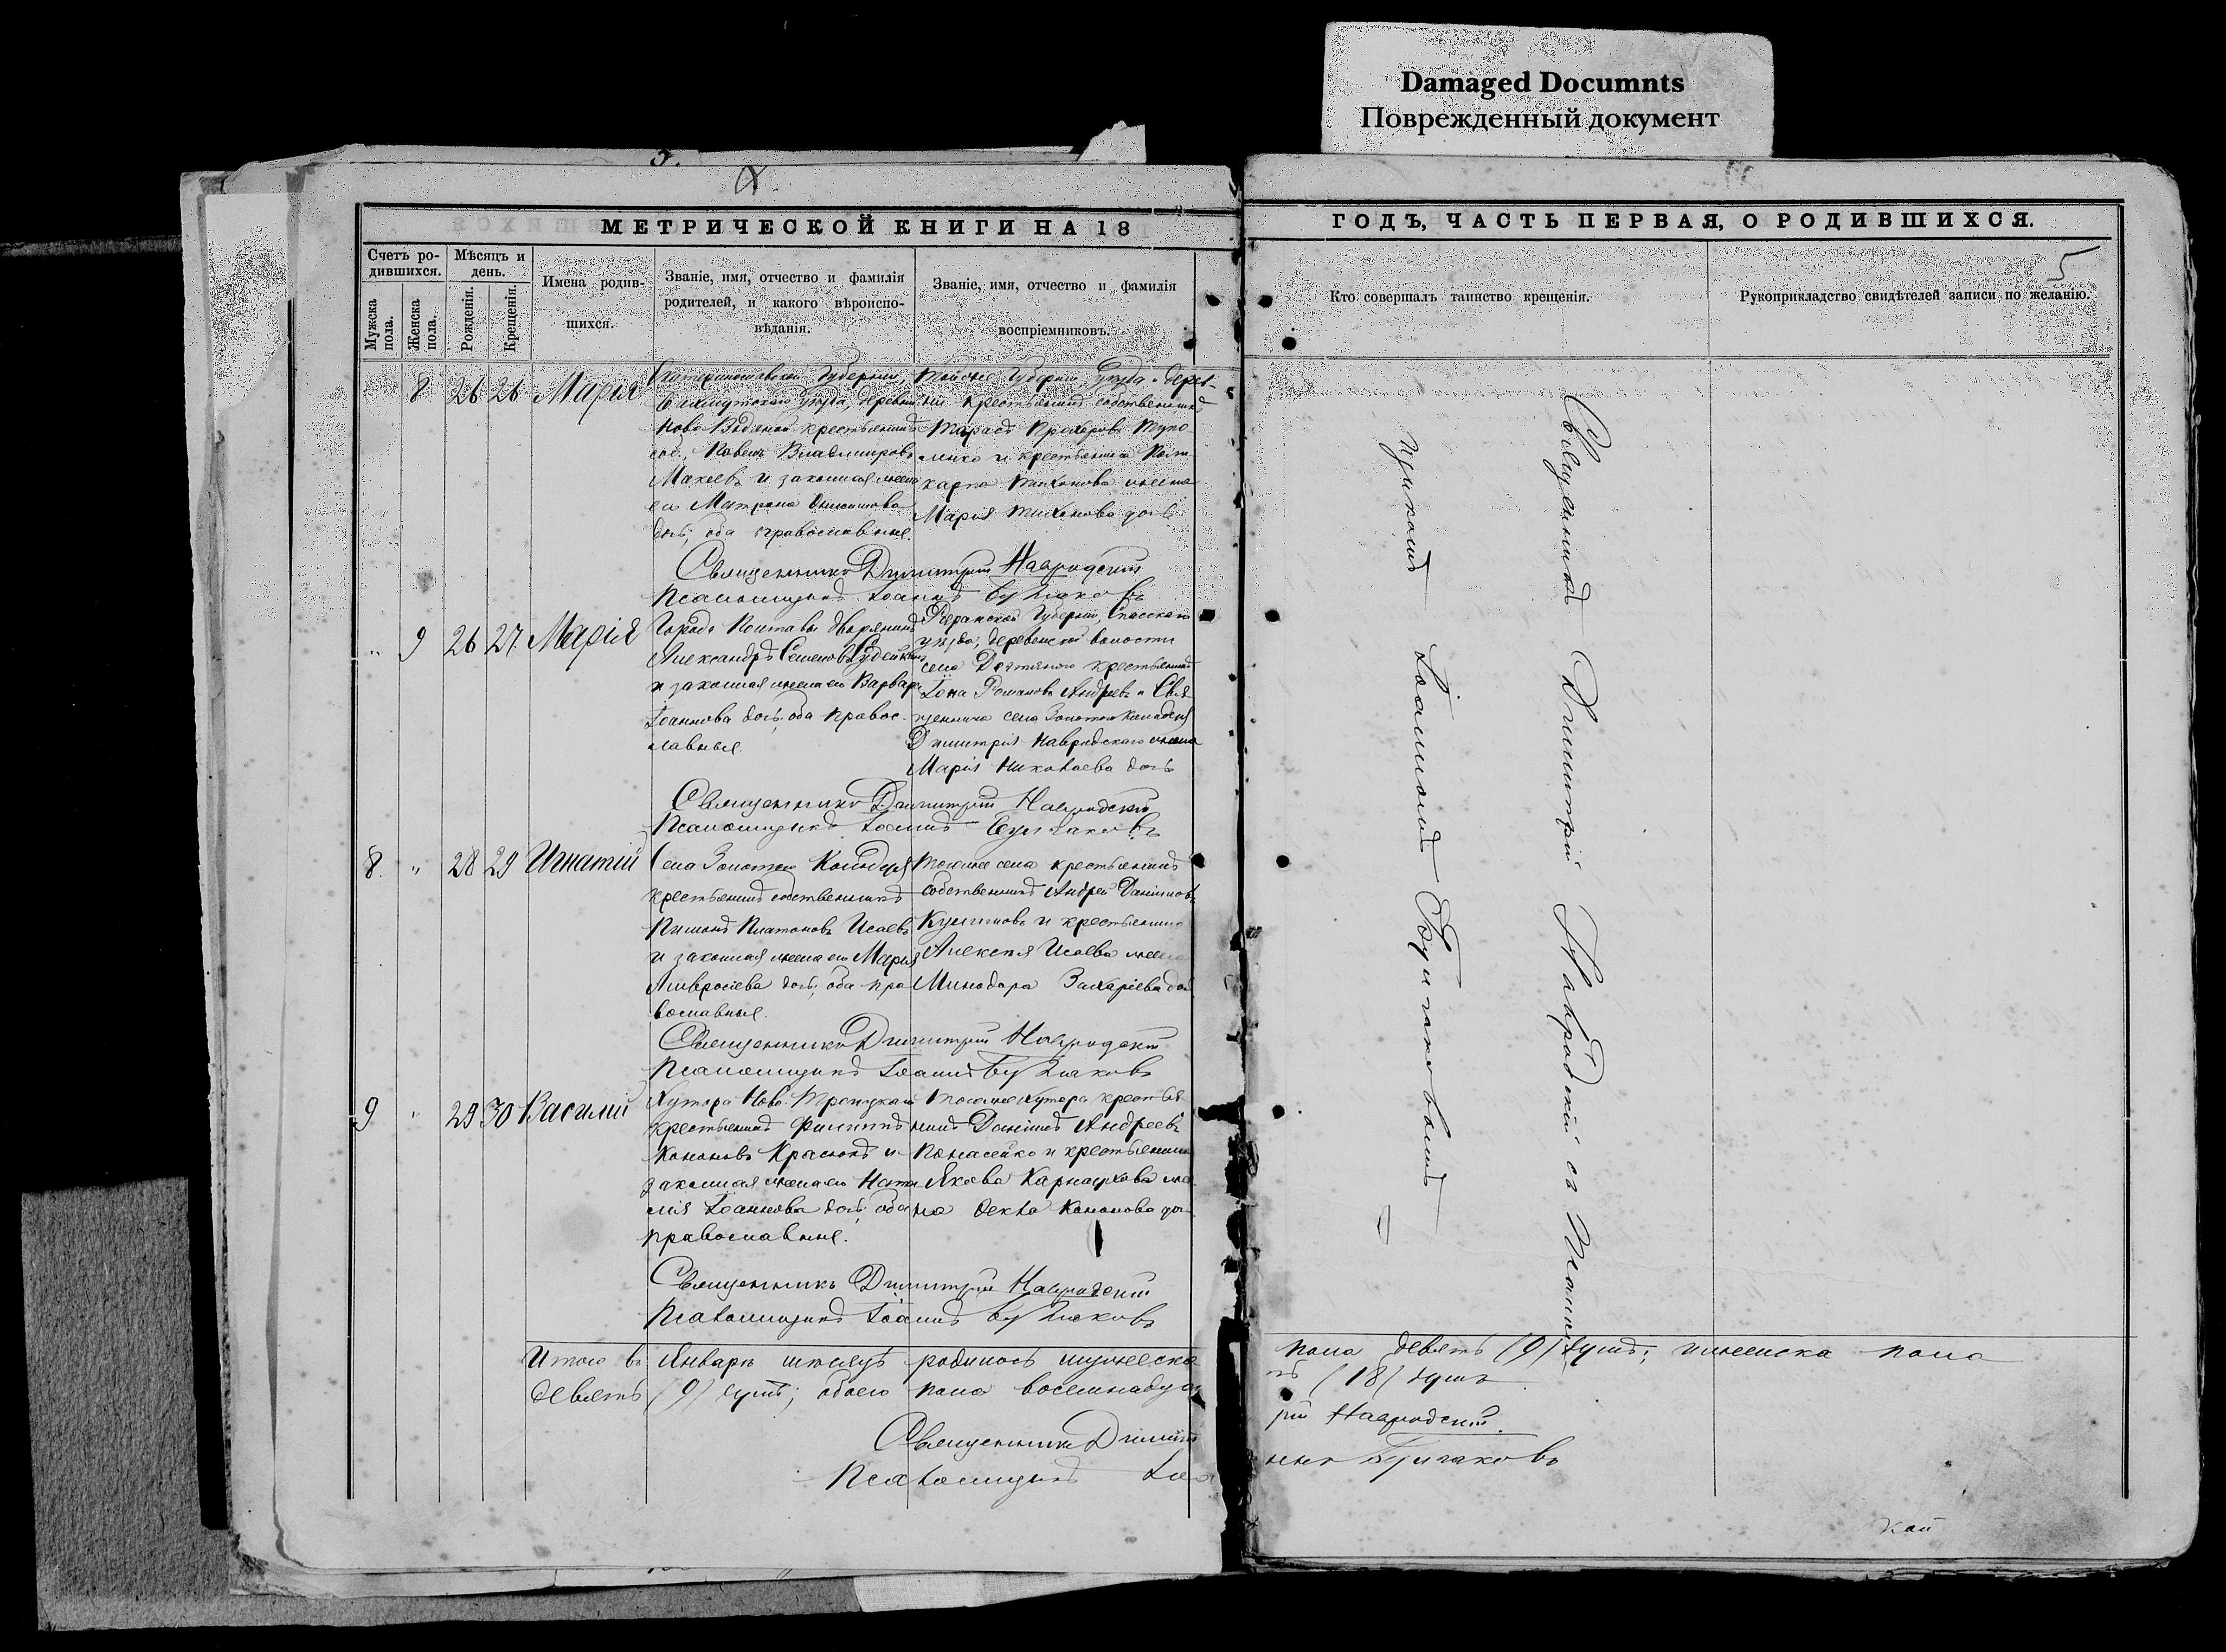 Damaged Documnts
Поврежденный документ
МЕТРИЧЕСКОЙ КНИГИ НА 18
ГОДЪ, ЧАСТЬ ПЕРВАЯ, О РОДИВШИХСЯ.
5
Счетъ ро-
дившихся.
Мужска
пола.
Женска
пола.
Мѣсяцъ и
день.
Рожденія.
Крещенія.
Имена родив-
шихся.
Званіе, имя, отчество и фамилія
родителей, и какого вѣроиспо-
вѣданія.
Званіе, имя, отчество и фамилія
воспріемниковъ.
Кто совершалъ таинство крещенія.
Рукоприкладство свидѣтелей записи по желанію.
8 26 26 Марія
Екатеринославской Губерніи,
Бахмутскаго уѣзда, деревни
Ново-Водяной крестьянинъ
соб. Павелъ Владиміровъ
Макеевъ и законная жена
его Матрона
дочь; оба православные.
Тойже Губерніи уѣзда и дерев-
ни крестьянинъ собственникъ
Тарасъ Прохоровъ
и крестьянина
карпа Тихонова жена
Марія Тихонова дочь
Священникъ Димитрій Навродскій
Псаломщикъ Іоаннъ Булгаковъ
" 9 26 27 Марія
Города Полтавы дворянинъ
Александръ Семеновъ
и законная жена его Варвара
Іоаннова дочь; оба правос-
лавные.
Рязанской Губерніи, Спасскаго
уѣзда, деревенской волости
села крестьянинъ
Іона Романовъ Андреевъ и Свя-
щенника села Золотой Колодезь
Димитрія Навродскаго жена
Марія Николаева дочь
Священникъ Димитрій Навродскій
Псаломщикъ Іоаннъ Булгаковъ
8. " 28 29 Игнатій
Села Золотой Колодезь
крестьянинъ собственникъ
Платоновъ Исаевъ
и законная жена его Марія
Амвросіева дочь; оба пра
вославные.
Тогоже села крестьянинъ
собственникъ Андрей Даниловъ
и крестьянина
Алексѣя Исаева жена
Минодора Захаріева доч
Священникъ Димитрій Навродскій
Псаломщикъ Іоаннъ Булгаковъ
9 " 29 30 Василій
Хутора Ново-Троицкаго
крестьянинъ Филиппъ
Кононовъ и
законная жена его Ната
лія Іоаннова дочь; оба
православные.
Тогоже хутора крестья
нинъ Даніилъ Андреевъ
Панасейко и крестьянина
Якова Карнаухова же
на Кононова до
Священникъ Димитрій Навродскій
Псаломщикъ Іоаннъ Булгаковъ
Священникъ Димитрій Навродскій съ Псалом
щикомъ Іоанномъ Булгаковымъ
Итого въ Январѣ мѣсяцѣ родилось мужеска пола девять (9) душъ; женска пола
девять (9) душъ; обоего пола восемнадца ть (18) душъ
Священникъ Димит рій Навродскій.
Псаломщикъ Іоа ннъ Булгаковъ